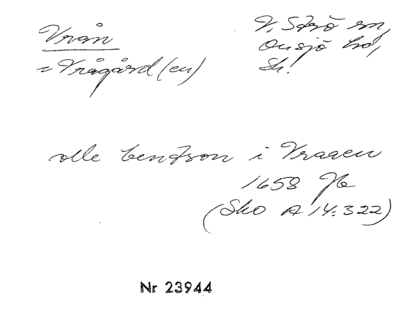 Vrån
= Vrågård (en)
V. Strö sn,
Onsjö hd,
Sk.
olle bendzson i Vraaen
1658 Jb
(Sko A 14:322)
Nr 23944